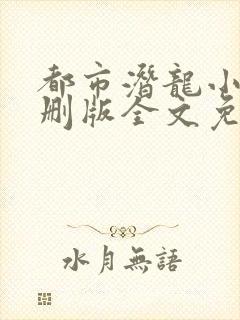 都市潛龍小
刪版全文免
水月無語